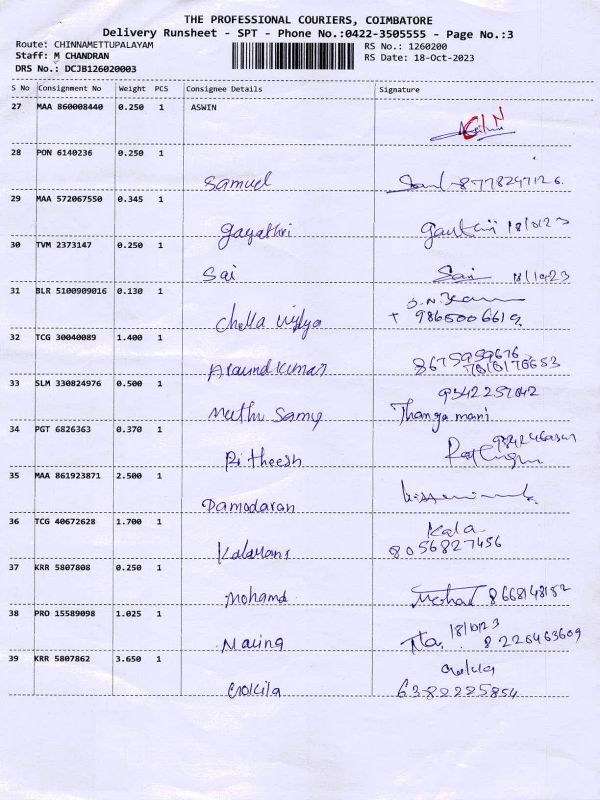 THE PROFESSIONAL COURIERS, COIMBATORE
Delivery Runsheet - SPT - Phone No.:0422-3505555 - Page No.:3
Route: CHINNAMETTUPALAYAM RS No.: 1260200
Staff: M CHANDRAN RS Date: 18-Oct-2023
DRS No.: DCJB126020003
S No Consignment No Weight PCS Consignee Details Signature
27 MAA 860008440 0.250 1 ASWIN
28 PON 6140236 0.250 1
Samuel 8778247126.
29 MAA 572067550 0.345 1
Gayathri 18/10/23
30 TVM 2373147 0.250 1
Sai Sai 18/10/23
31 BLR 5100909016 0.130 1
Chella Vidya 9865006619
32 TCG 30040089 1.400 1
Aravind Kumar 8675959676
33 SLM 330824976 0.500 1 9342257042
Muthu Samy Thangamani
34 PGT 6826363 0.370 1
Ritheesh
35 MAA 861923871 2.500 1
Damodaran
36 TCG 40672628 1.700 1 Kala
Kalaivani 8056827456
37 KRR 5807808 0.250 1
Mohamd 8668148182
38 PRO 15589098 1.025 1 18/10/23
8220463609
39 KRR 5807862 3.650 1
Crokila 6382225854